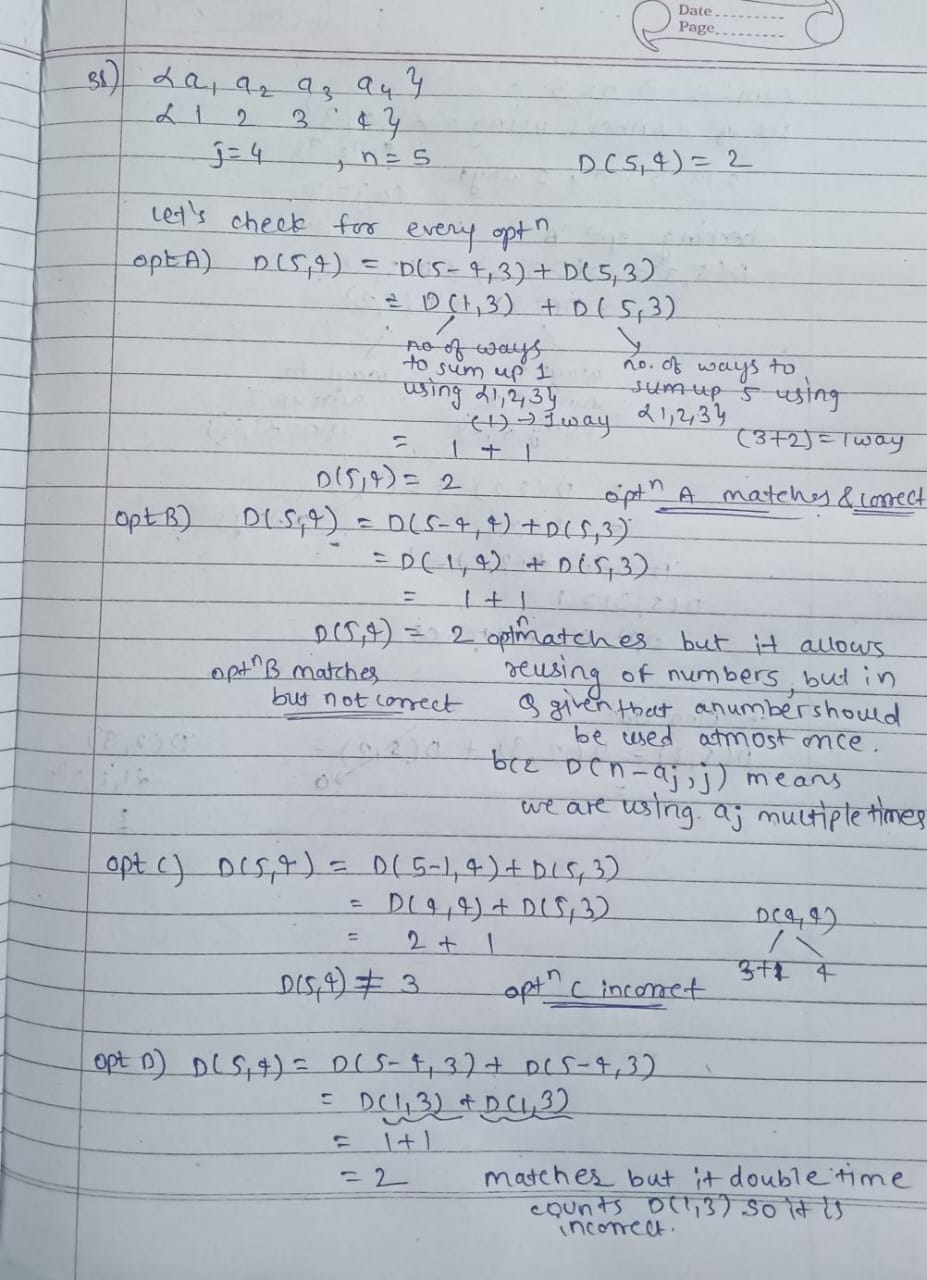 Date
Page
38) {a1 a2 a3 a4}
{1 2 3 4}
j=4 , n=5 D(5,4)=2
Let's check for every optn
opt A) D(5,4) = D(5-4,3)+D(5,3)
= D(1,3) + D(5,3)
no of ways to sum up 1 using {1,2,3}
(1)→1way
no. of ways to sum up 5 using {1,2,3}
(3+2)=1way
= 1 + 1
D(5,4)= 2
optn A matches & correct
opt B) D(5,4) = D(5-4,4)+D(5,3)
= D(1,4) + D(5,3)
= 1+1
D(5,4) = 2
optn B matches
but not correct
optn matches but it allows
reusing of numbers, but in
Q given that a number should
be used atmost once.
bcz D(n-aj,j) means
we are using aj multiple times
opt C) D(5,4) = D(5-1,4)+D(5,3)
= D(4,4)+D(5,3)
= 2 + 1
D(4,4)
3+1 4
D(5,4) ≠ 3 optn C incorret
opt D) D(5,4) = D(5-4,3)+ D(5-4,3)
= D(1,3) + D(1,3)
= 1+1
= 2 matches but it double time
counts D(1,3) so it is
incorrect.